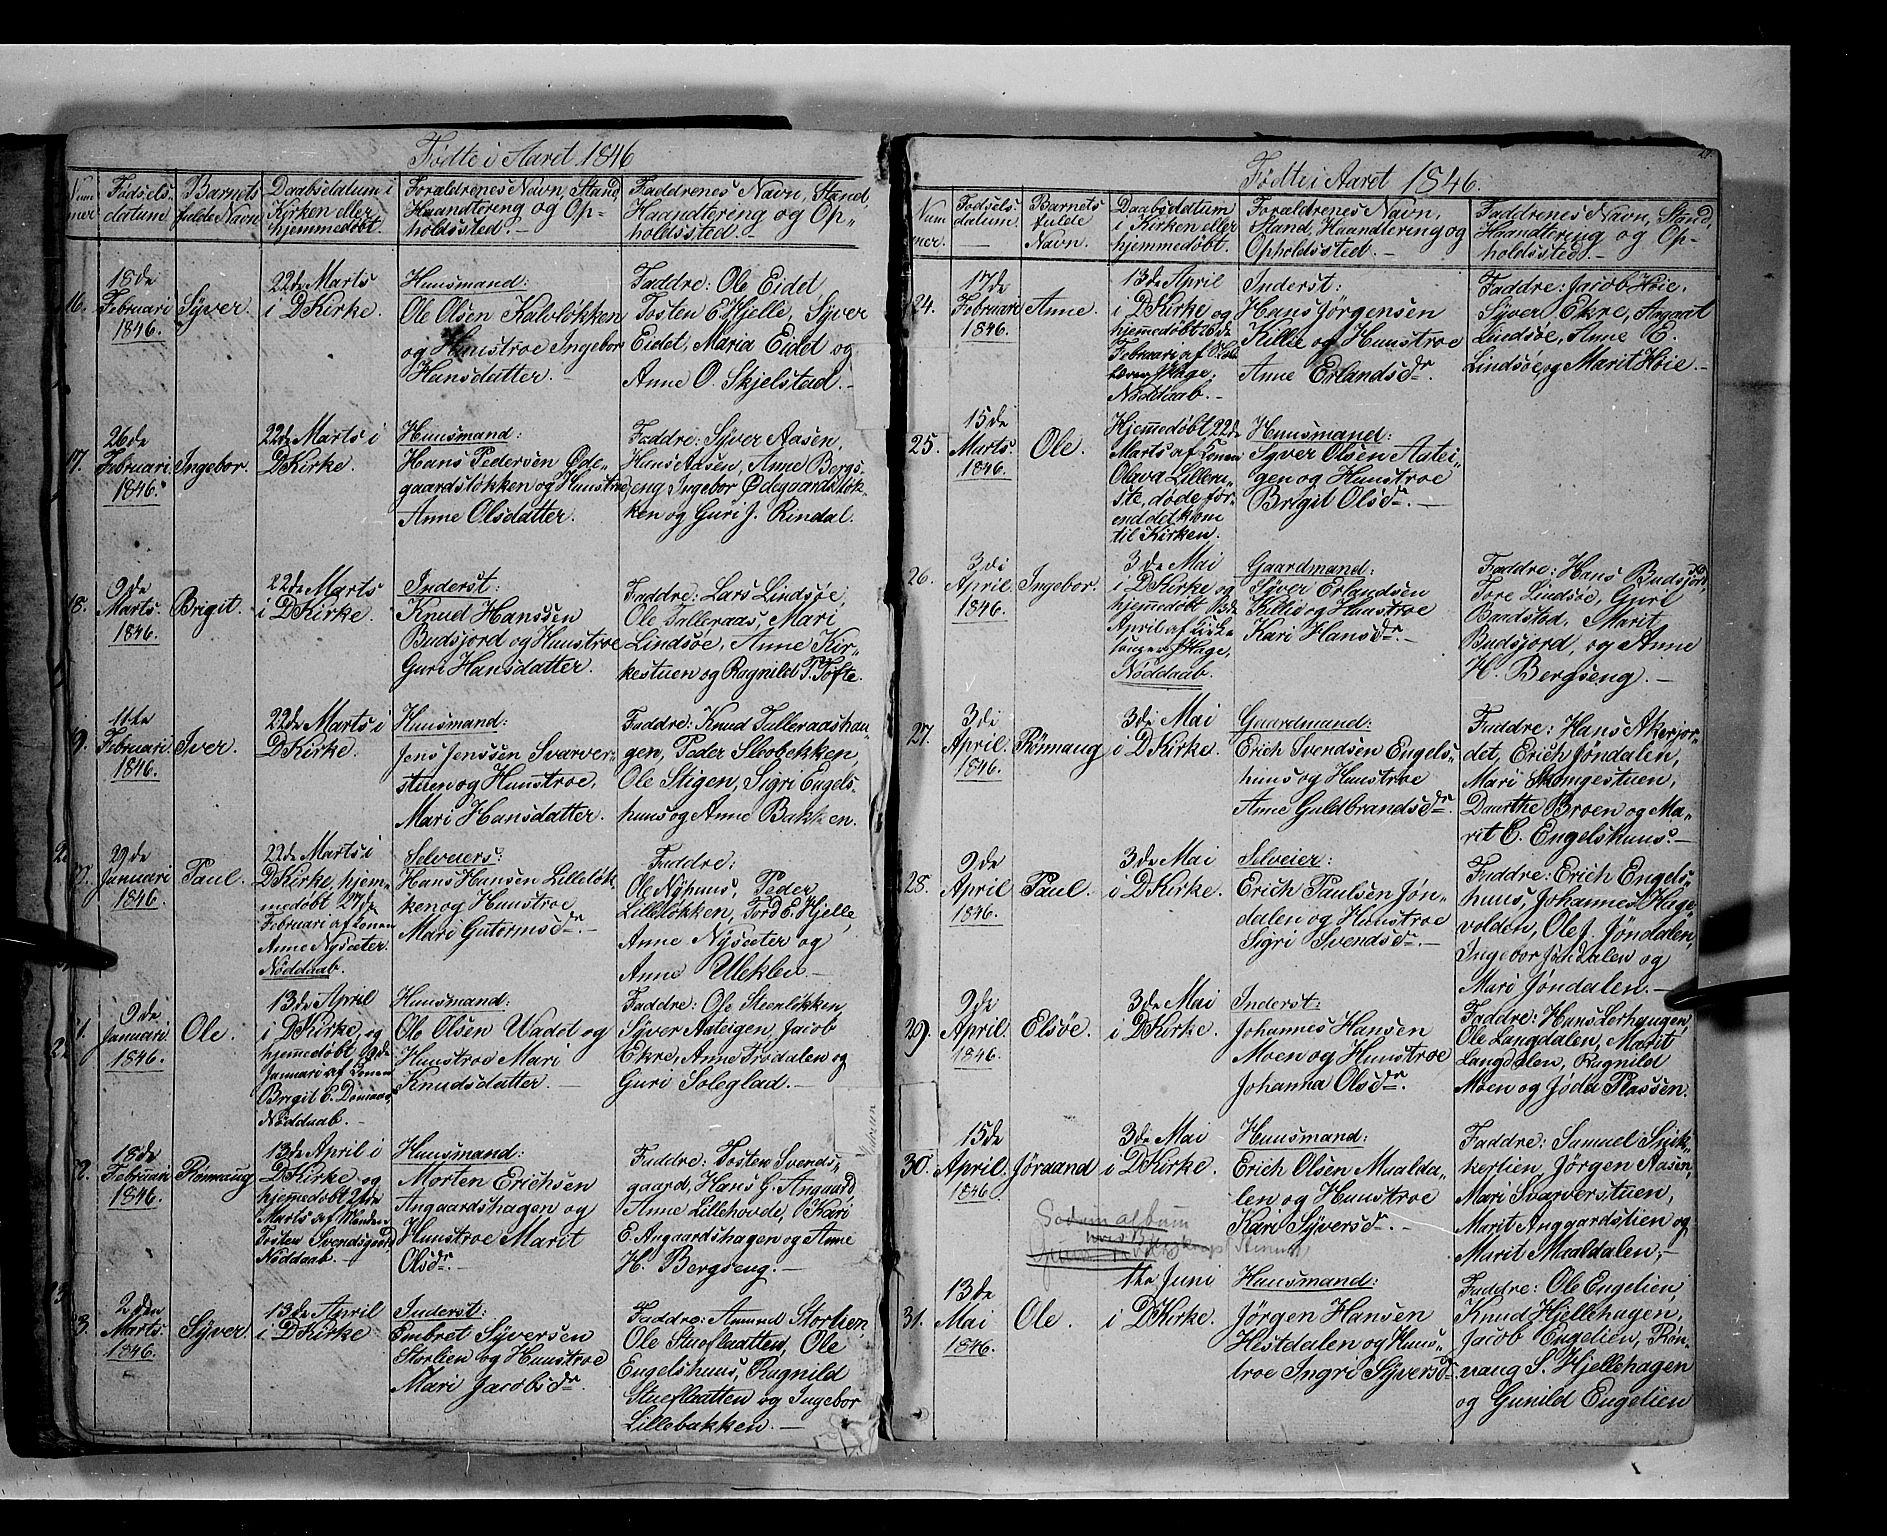 Fødte i Aaret 1846
Num
mer.
Fødsels-
datum.
Barnets
fulde Navn
Daabsdatum i
Kirken eller
hjemmedøbt.
Forældrenes Navn, Stand,
Haandtering og Op-
holdssted.-
Faddrenes Navn, Stand,
Haandtering og Op-
holdssted.-
16.
18de
Februari
1846.
Syver.
22de Marts
i DKirke.
Huusmand:
Ole Olsen Kalvløkken
og Huustroe Ingebor
Hansdatter.-
Faddre: Ole Eidet
Tosten E. Hjelle, Syver
Eidet, Maria Eidet og
Anne O. Skjelstad.-
17.
26de
Februari
1846.
Ingebor.
22de Marts i
DKirke.
Huusmand:
Hans Pedersen Øde-
gaardsløkken og Huustroe
Anne Olsdatter.
Faddre: Syver Aasen,
Hans Aasen, Anne Bergs-
eng, Ingebor Ødegaardsløk-
ken og Guri J. Rindal.
18.
9de
Marts.
1846.
Brigit.
22de Marts
i DKirke.
Inderst:
Knud Hanssen
Budsjord og Huustroe
Guri Hansdatter.-
Faddre: Lars Lindsøe,
Ole Talleraas, Mari
Lindsøe, Anne Kir-
kestuen og Ragnild T. Tofte.
9.
11te
Februari
1846.
Iver.
22de Marts i
DKirke.
Huusmand:
Jens Jenssen Svarver-
stuen og Huustroe,
Mari Hansdatter.
Faddre: Knud Talleraashau-
gen, Peder Slobekken,
Ole Stigen, Sigri Engels-
huus og Anne Bakken.
29de
Januari
1846
Paul.
22de Marts i
DKirke, hjem-
medøbt 27de
Februari af Konen
Anne Nysæter.
Nøddaab.
Selveiers:
Hans Hansen Lilleløk-
ken og Huustroe
Mari Gutormsdr.-
Faddre:
Ole Nøhuus, Peder
Lilleløkken, Tord E. Hjelle,
Anne Nysæter og
Anne Uleklev.-
1.
9de
Januari.
1846.
Ole.
13de April
i DKirke, og
hjemmedøbt 19de
Januari af Konen
Brigit E. Domaas,
Nøddaab.
Huusmand:
Ole Olsen Vadet og
Huustroe Mari
Knudsdatter.-
Faddre: Ole Steenløkken,
Syver Aateigen, Jacob
Ekre, Anne Trødalen og
Guri Soleglad.-
2.
18de
Februari
1846.
Rønnaug
13de April i
DKirke og
hjemmedøbt 22de
Marts af Manden
Tosten Svendsgaard
Nøddaab.
Huusmand:
Morten Erichsen
Angaardshagen og
Huustroe Marit
Olsdr.-
Faddre: Tosten Svends-
gaard, Hans G. Angaard,
Anne Lillehovde, Kari
E. Angaardshagen og Anne
H. Bergseng.-
3.
2den
Marts.
1846.
Syver.
13de April
i DKirke
Inderst:
Embret Syversen
Storlien og Huustroe
Mari Jacobsdr.
Faddre: Amund Storlien,
Ole Stueflaatten, Ole
Engelshuus, Ragnild
Stueflaatten og Ingebor
Lillebakken.-
Fødte i Aaret 1846.
Num
mer.
Fødsels
datum.
Barnets
fulde
Navn.
Daabsdatum
i Kirken eller
hjemmedøbt.
Forældrenes Navn,
Stand, Haandtering og
Opholdssted.-
Faddrenes Navn, Stand,
Haandtering og Op-
holdssted.-
24.
17de
Februari
1846.
Anne.
13de April
i DKirke og
hjemmedøbt 26de
Februari af
Hage,
Nøddaab.-
Inderst:
Hans Jørgensen
Killie og Huustroe
Anne Erlandsdr.
Faddre: Jacob Høie,
Syver Ekre, Aagaat
Lindsøe, Anne E.
Lindsøe og Marit Høie.-
25.
15de
Marts.
1846.
Ole.
Hjemmedøbt 22de
Marts af Konen
Olava Lilleru-
ste, døde før-
end det kom
til Kirken.
Huusmand:
Syver Olsen Aatei-
gen og Huustroe
Brigit Olsdr.-
26.
3di
April.
1846.
Ingebor.
3de Mai
i DKirke og
hjemmedøbt 13de
April af Kirke-
sanger Hage,
Nøddaab.
Gaardmand:
Syver Erlandsen
Killie og Huustroe
Kari Hansdr.-
Faddre: Hans Budsjord,
Tore Lindsøe, Guri
Bandstad, Marit
Budsjord, og Anne
H. Bergseng.-
27.
3di
April.
1846.
Rønnaug
3di Mai
i DKirke.
Gaardmand:
Erich Svendsen Engels-
huus og Huustroe
Anne Guldbrandsdr.
Faddre: Hans Akerjor-
det, Erich Jøndalen,
Mari Skamgestuen,
Daarthe Broen og Ma-
rit E. Engelshuus.-
28.
9de
April
1846.
Paul.
3de Mai
i DKirke.
Selveier:
Erich Paulsen Jøn-
dalen og Huustroe
Sigri Svendsdr.-
Faddre: Erich Engels-
huus, Johannes Hage-
volden, Ole J. Jøndalen,
Ingebor Jøndalen og
Mari Jøndalen.-
29.
9de
April
1846.
Elsøe.
3de Mai
i DKirke.
Inderst:
Johannes Hansen
Moen og Huustroe
Johanna Olsdr.
Faddre: Hans Lerhougen,
Ole Langdalen, Marit
Langdalen, Ragnild
Moen og Jøda Plassen.
30.
15de
April.
1846
Jøraand
3de Mai
i DKirke.
Huusmand:
Erich Olsen Maalda-
len og Huustroe
Kari Syversdr.-
Faddre: Samuel Snik-
kerlien, Jørgen Aasen,
Mari Svarverstuen,
Marit Angaardstien og
Marit Maaldalen,-
31.
13de
Mai
1846.
Ole.
1te Juni
i DKirke.
Huusmand:
Jørgen Hansen
Hestdalen og Huus-
troe Ingri Syversdr
Faddre: Ole Engelien,
Knud Hjellehagen,
Jacob Engelien, Røn-
naug S. Hjellehagen
og Gunild Engelien